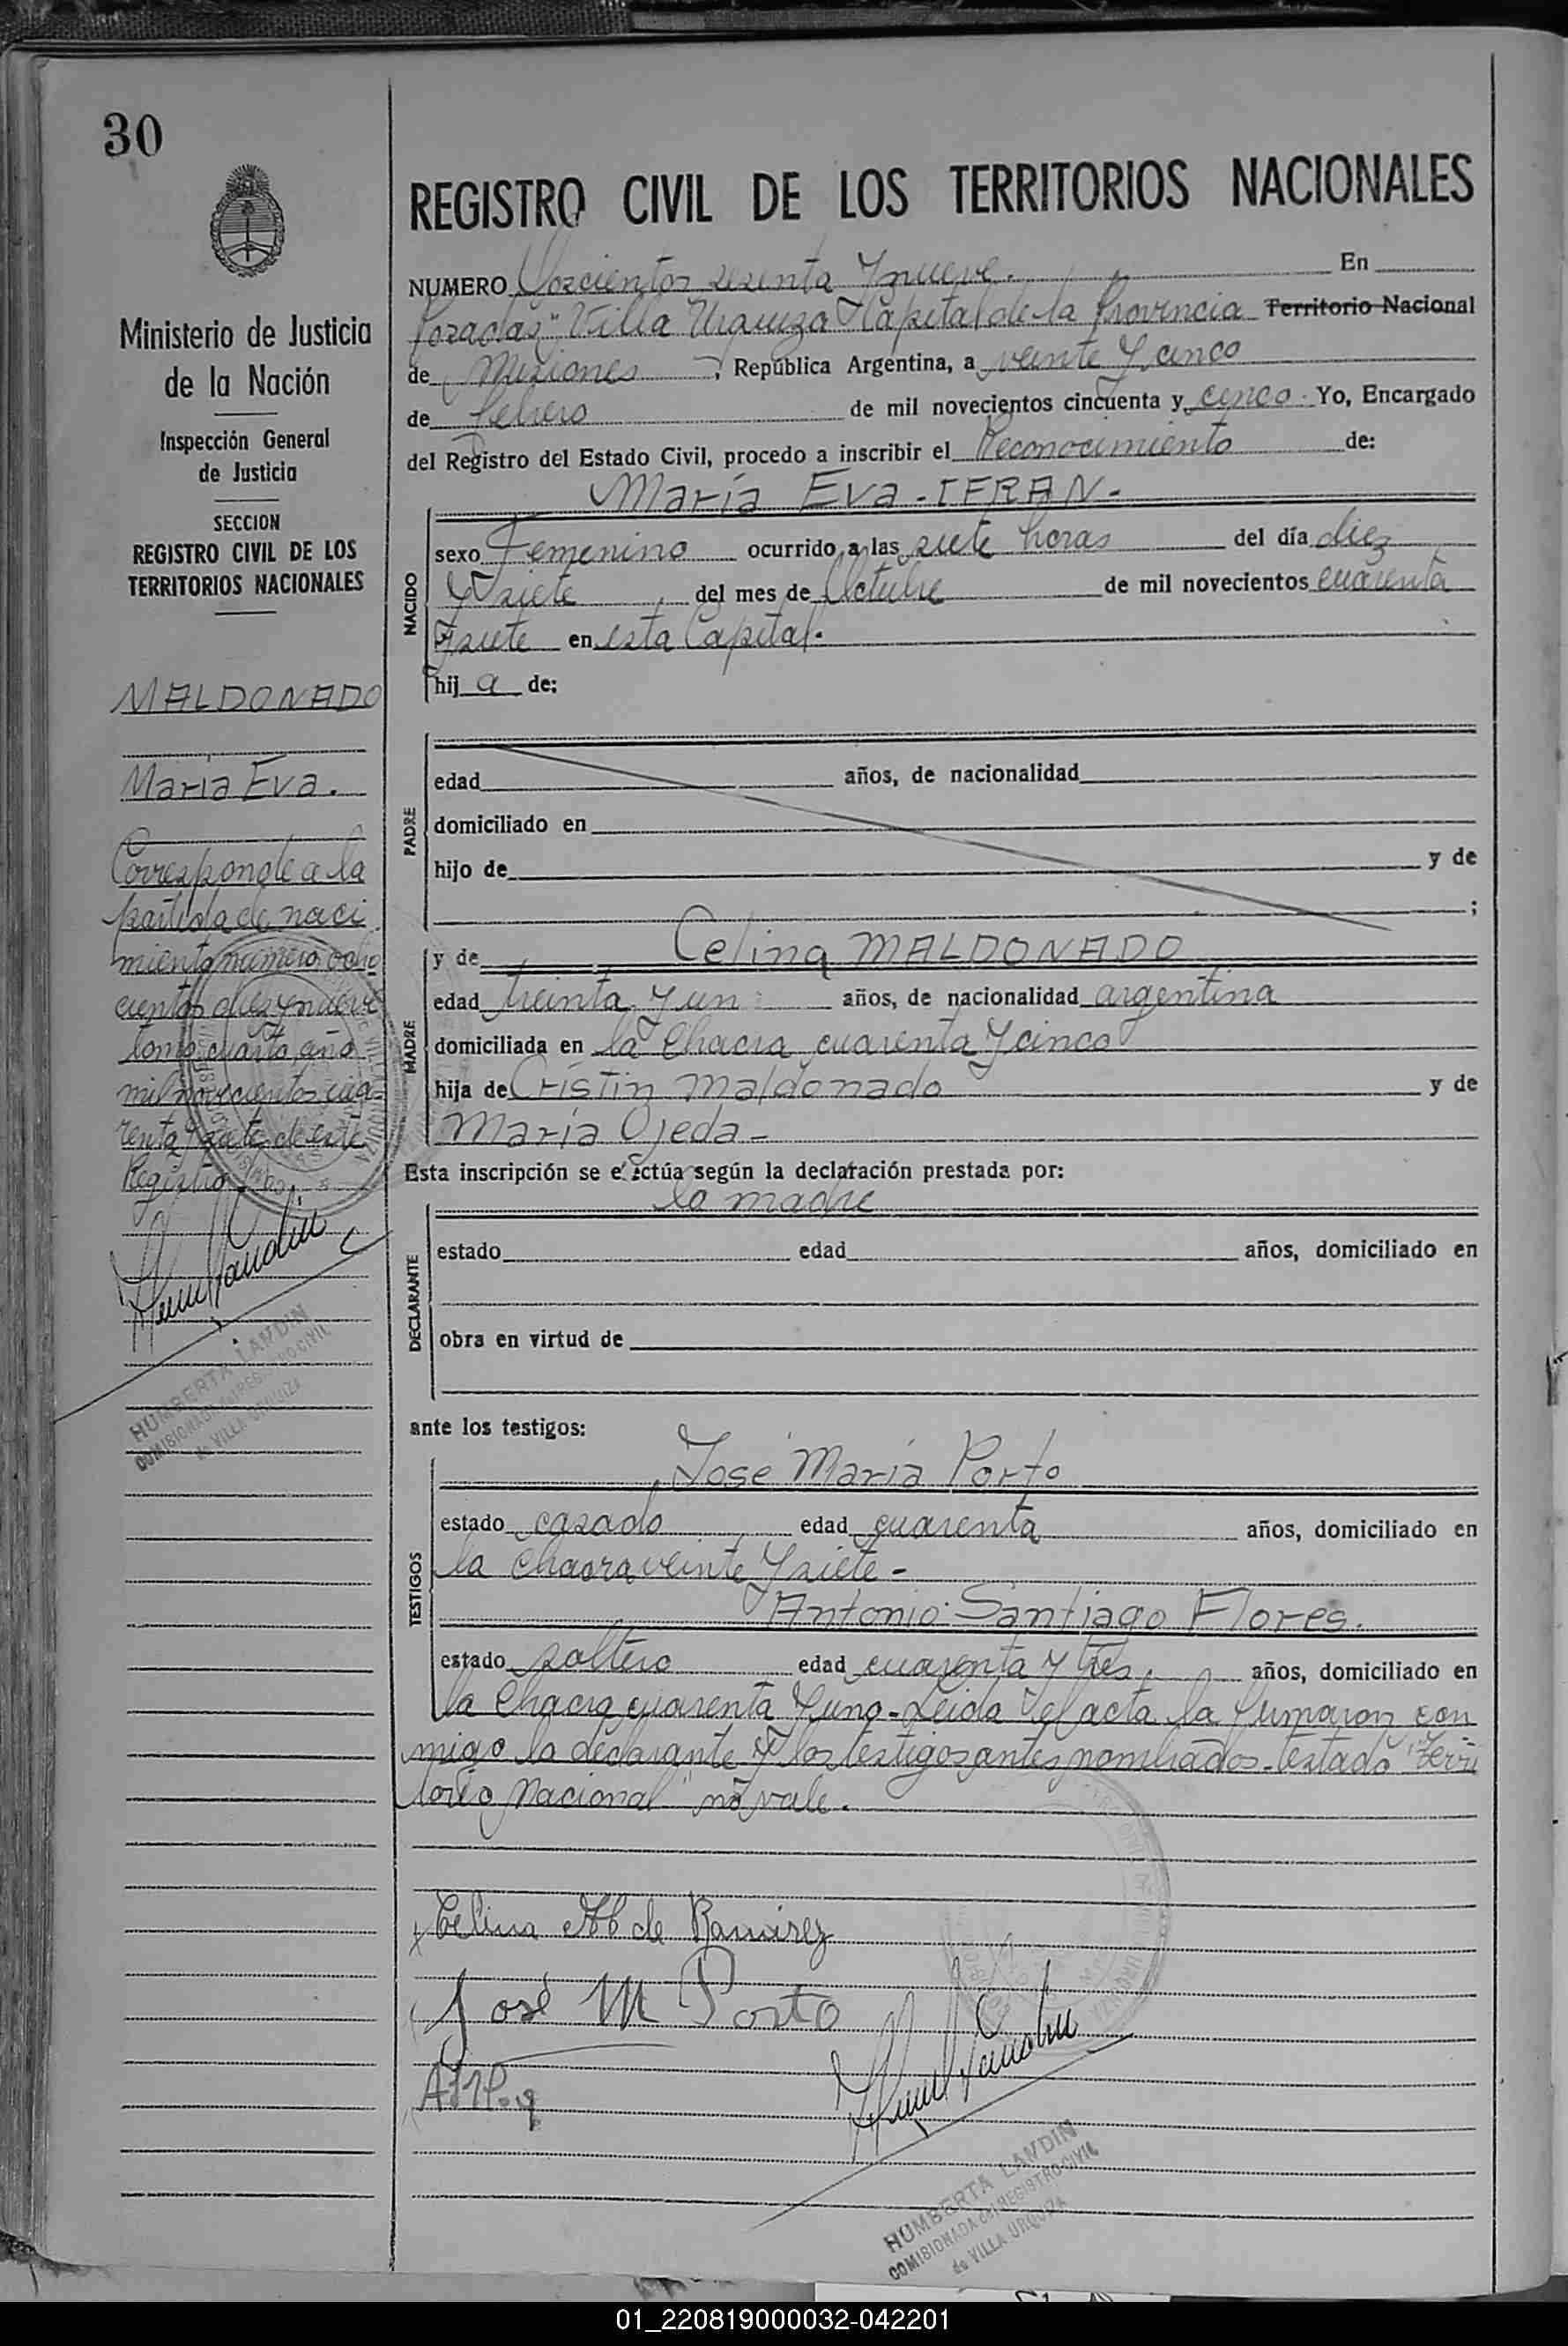 30
Ministerio de Justicia
de la Nación
Inspección General
de Justicia
SECCION
REGISTRO CIVIL DE LOS
TERRITORIOS NACIONALES
MALDONADO
María Eva.
Corresponde a la
partida de naci
miento número ocho
cientos diez y nueve
tomo cuarto año
mil novecientos cua=
renta y siete de este
Registro.
HUMBERTA LANDIN
COMISIONADA del REGISTRO CIVIL
de VILLA URQUIZA
REGISTRO CIVIL DE LOS TERRITORIOS NACIONALES
NUMERO Doscientos sesenta y nueve. En
Posadas "Villa Urquiza" Capital de la Provincia Territorio Nacional
de Misiones, República Argentina, a veinte y cinco
de febrero de mil novecientos cincuenta y cinco. Yo, Encargado
del Registro del Estado Civil, procedo a inscribir el Reconocimiento de:
María Eva - IFRAN -
NACIDO
sexo Femenino ocurrido a las siete horas del día diez
y siete del mes de Octubre de mil novecientos cuarenta
y siete en esta Capital.
hija de:
PADRE
edad años, de nacionalidad
domiciliado en
hijo de y de
;
MADRE
y de Celina MALDONADO
edad treinta y un años, de nacionalidad argentina
domiciliada en la Chacra cuarenta y cinco
hija de Cristin Maldonado y de
María Ojeda -
Esta inscripción se efectúa según la declaración prestada por:
la madre
DECLARANTE
estado edad años, domiciliado en
obra en virtud de
ante los testigos:
TESTIGOS
José María Porto
estado casado edad cuarenta años, domiciliado en
la chacra veinte y siete -
Antonio Santiago Flores.
estado soltero edad cuarenta y tres, años, domiciliado en
la Chacra cuarenta y uno - Leida el acta la firmaron con
migo la declarante y los testigos antes nombrados - testado "Terri
torio Nacional" no vale.
Celina M de Ramirez
José M Porto
HUMBERTA LANDIN
COMISIONADA del REGISTRO CIVIL
de VILLA URQUIZA
01_220819000032-042201